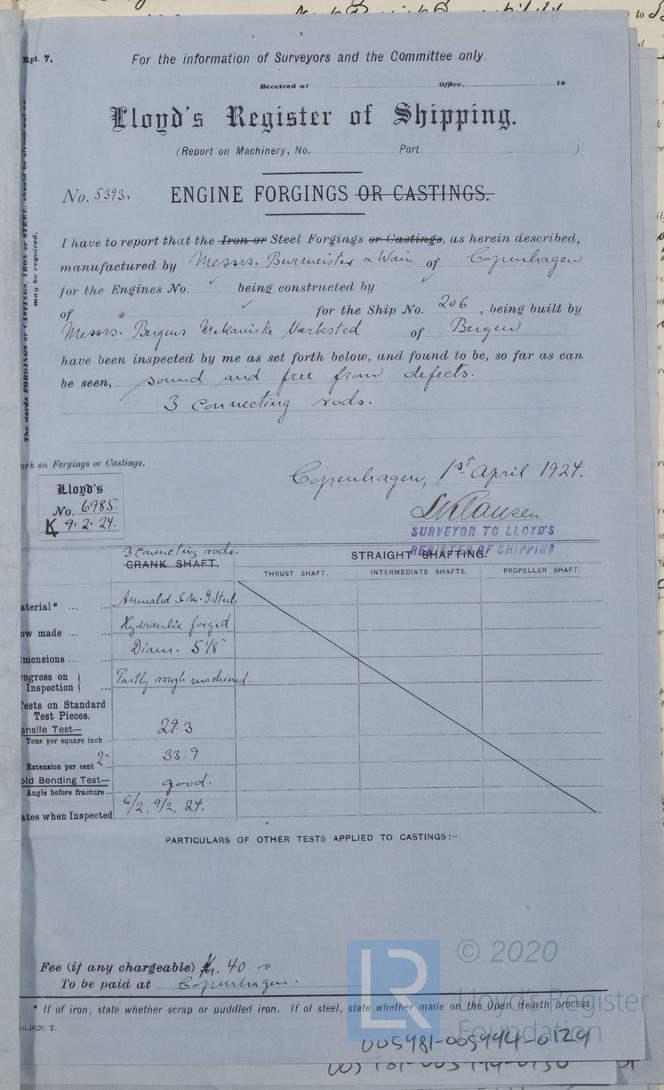 Rpt. 7.
For the information of Surveyors and the Committee only.
Received at Office, 19
Lloyd's Register of Shipping.
(Report on Machinery, No. Port )
No. 5393.
ENGINE FORGINGS OR CASTINGS.
I have to report that the Iron or Steel Forgings or Castings, as herein described,
manufactured by Messrs. Burmeister & Wain of Copenhagen
for the Engines No. ✓ being constructed by
of ✓ for the Ship No. 206 , being built by
Messrs. Bergens Mekaniske Værksted of Bergen
have been inspected by me as set forth below, and found to be, so far as can
be seen, sound and free from defects.
3 connecting rods.
The words FORGINGS or CASTINGS, IRON or STEEL, should be struck out as
may be required.
rk on Forgings or Castings.
Copenhagen, 1st April 1924.
Lloyd's
No. 6985.
K 9.2.24.
SURVEYOR TO LLOYD'S
REGISTER OF SHIPPING
3 connecting rods.
CRANK SHAFT.
STRAIGHT SHAFTING.
THRUST SHAFT. INTERMEDIATE SHAFTS. PROPELLER SHAFT.
aterial* ... ... Annealed S.M. I. Steel.
ow made ... ... Hydraulic forged
mensions ... ... Diam. 5 1/8"
ogress on
Inspection } ... Partly rough machined.
ests on Standard
Test Pieces.
ensile Test—
Tons per square inch 29.3
Extension per cent 2" 33.9
old Bending Test—
Angle before fracture ... good.
ates when Inspected 6/2, 9/2, 24.
PARTICULARS OF OTHER TESTS APPLIED TO CASTINGS:—
Fee (if any chargeable) Kr. 40
To be paid at Copenhagen.
* If of iron, state whether scrap or puddled iron. If of steel, state whether made on the Open Hearth process.
LR
© 2020
Lloyd's Register
Foundation
005481-005494-0129